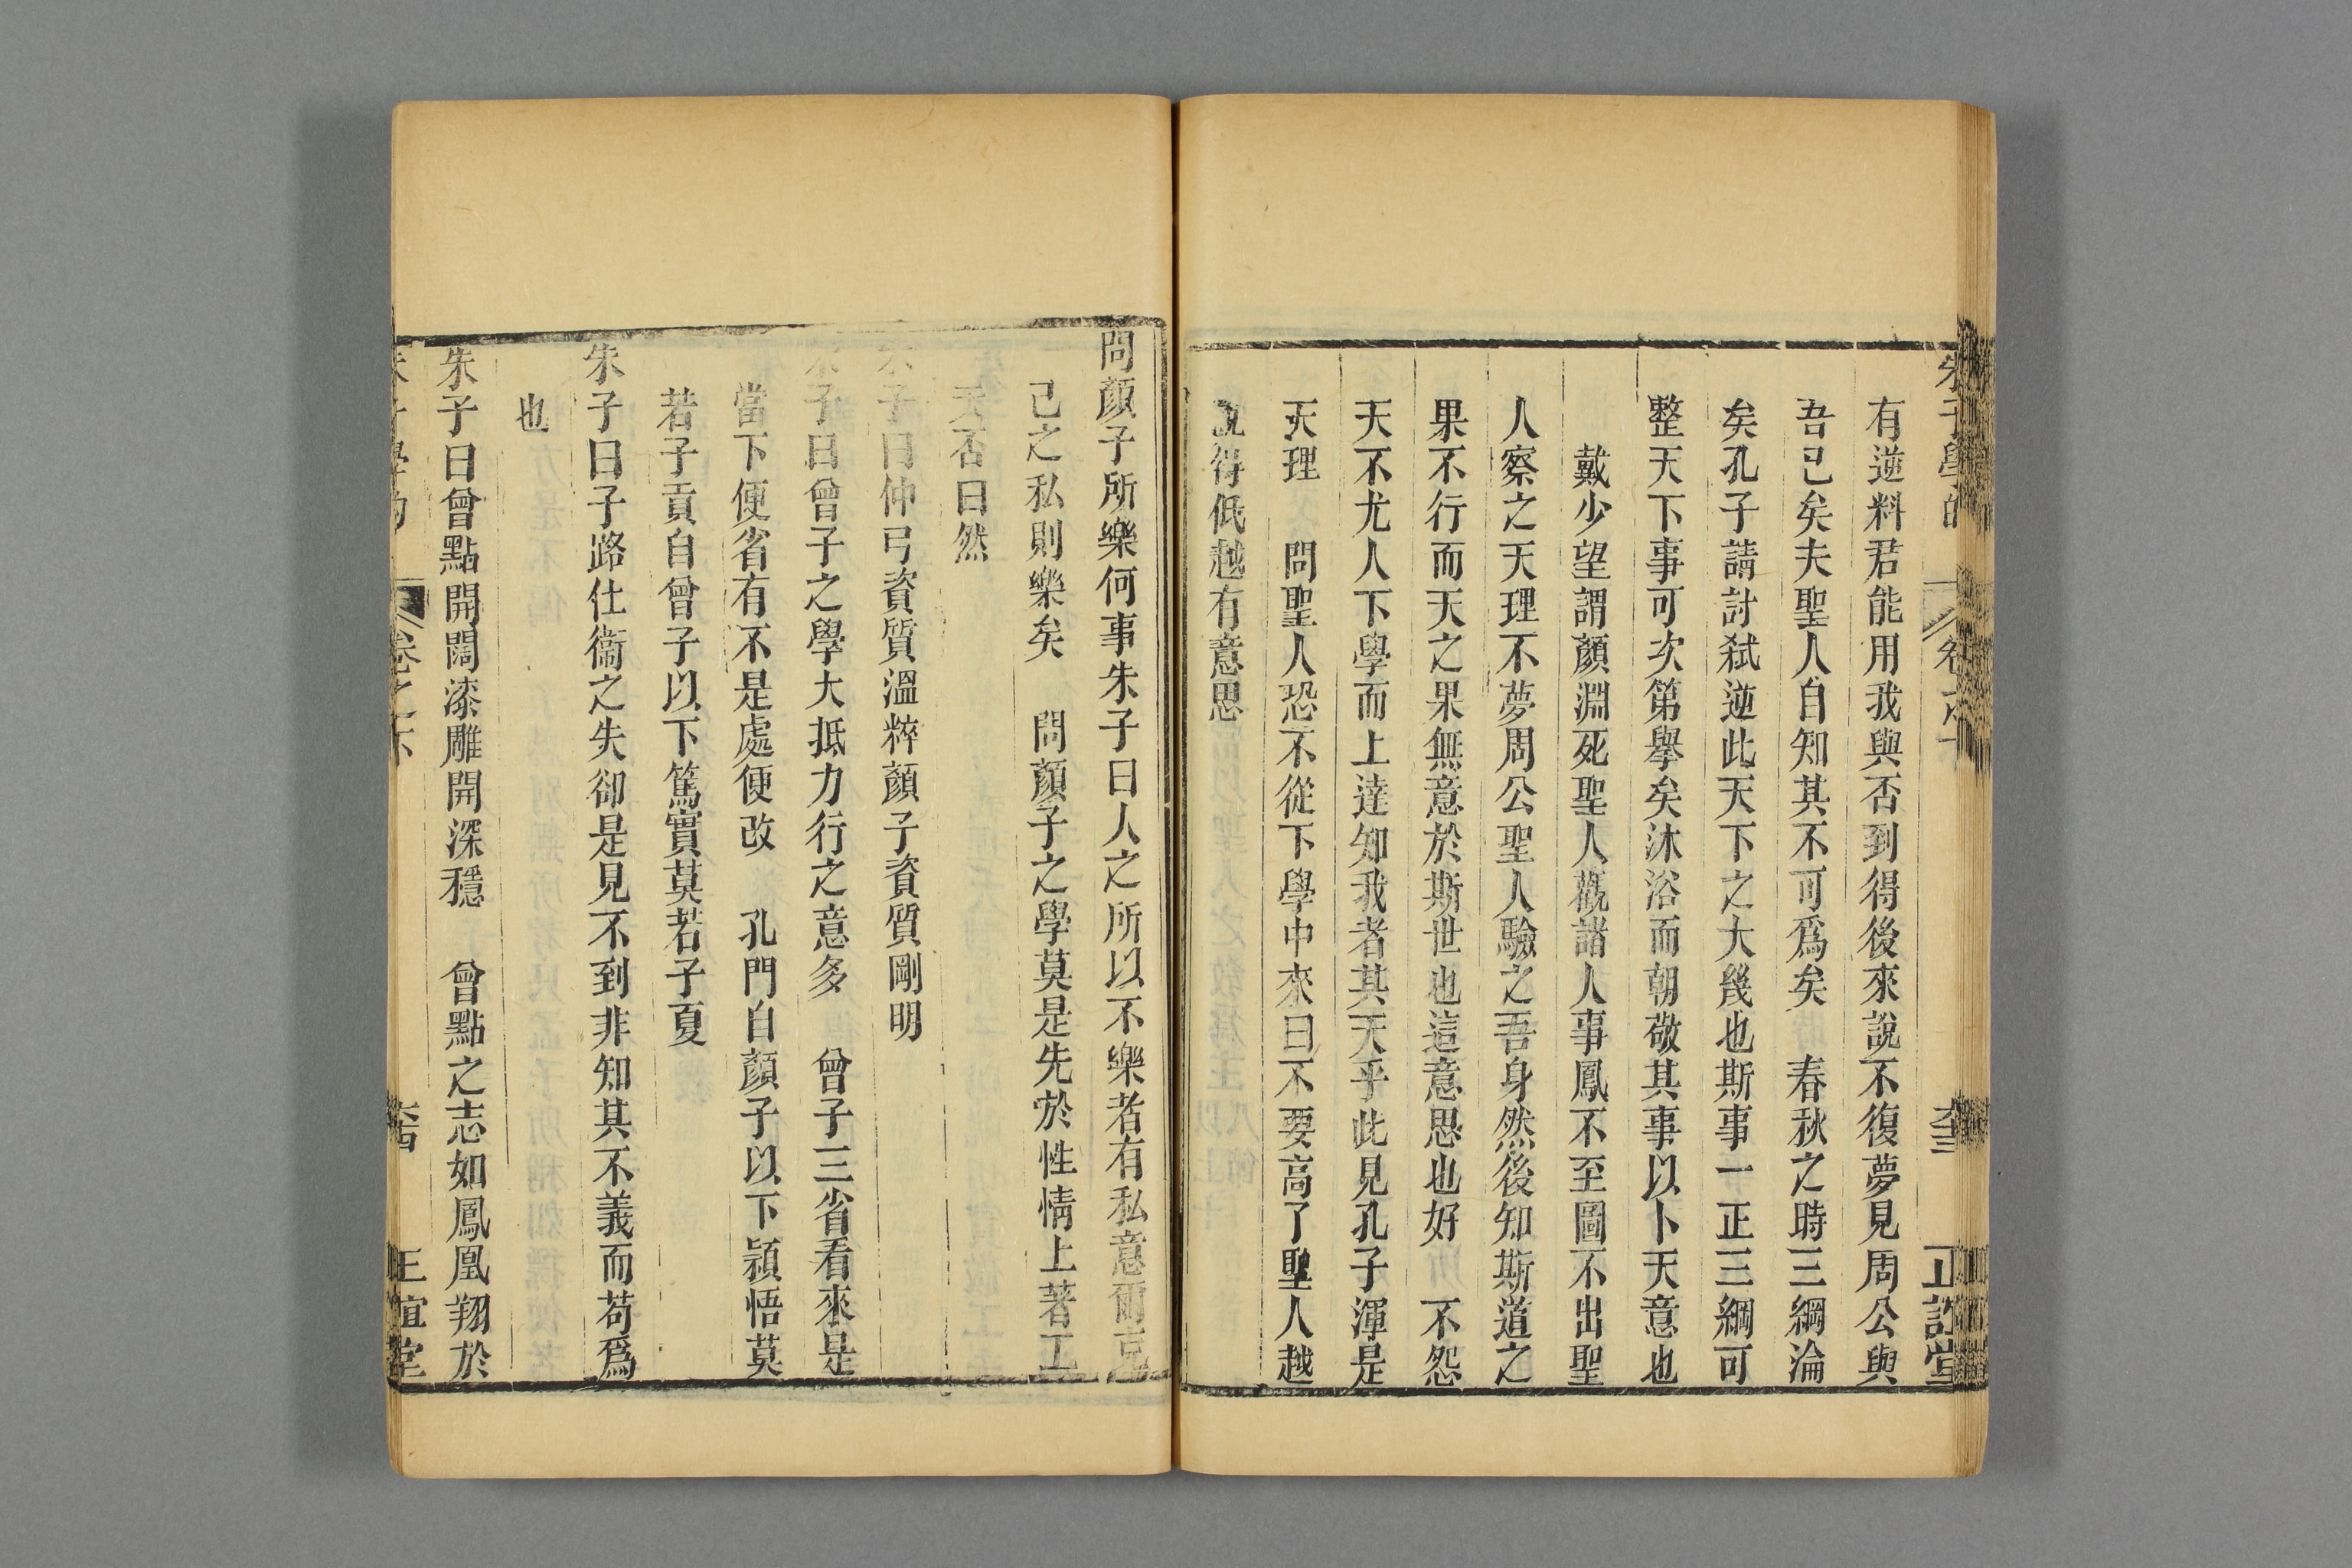 朱子學的 卷之下 奎 正誼堂
有逆料君能用我與否到得後來說不復夢見周公與
吾已矣夫聖人自知其不可爲矣 春秋之時三綱淪
矣孔子請討弑逆此天下之大幾也斯事一正三綱可
整天下事可次第舉矣沐浴而朝敬其事以卜天意也
戴少望謂顏淵死聖人觀諸人事鳳不至圖不出聖
人察之天理不夢周公聖人驗之吾身然後知斯道之
果不行而天之果無意於斯世也這意思也好 不怨
天不尤人下學而上達知我者其天乎此見孔子渾是
天理 問聖人恐不從下學中來曰不要高了聖人越
說得低越有意思
問顏子所樂何事朱子曰人之所以不樂者有私意爾克
己之私則樂矣 問顏子之學莫是先於性情上著工
夫否曰然
朱子曰仲弓資質溫粹顏子資質剛明
朱子曰曾子之學大抵力行之意多 曾子三省看來是
當下便省有不是處便改 孔門自顏子以下穎悟莫
若子貢自曾子以下篤實莫若子夏
朱子曰子路仕衞之失卻是見不到非知其不義而苟爲
也
朱子曰曾點開闊漆雕開深穩 曾點之志如鳳凰翔於
朱子學的 卷之下 正誼堂